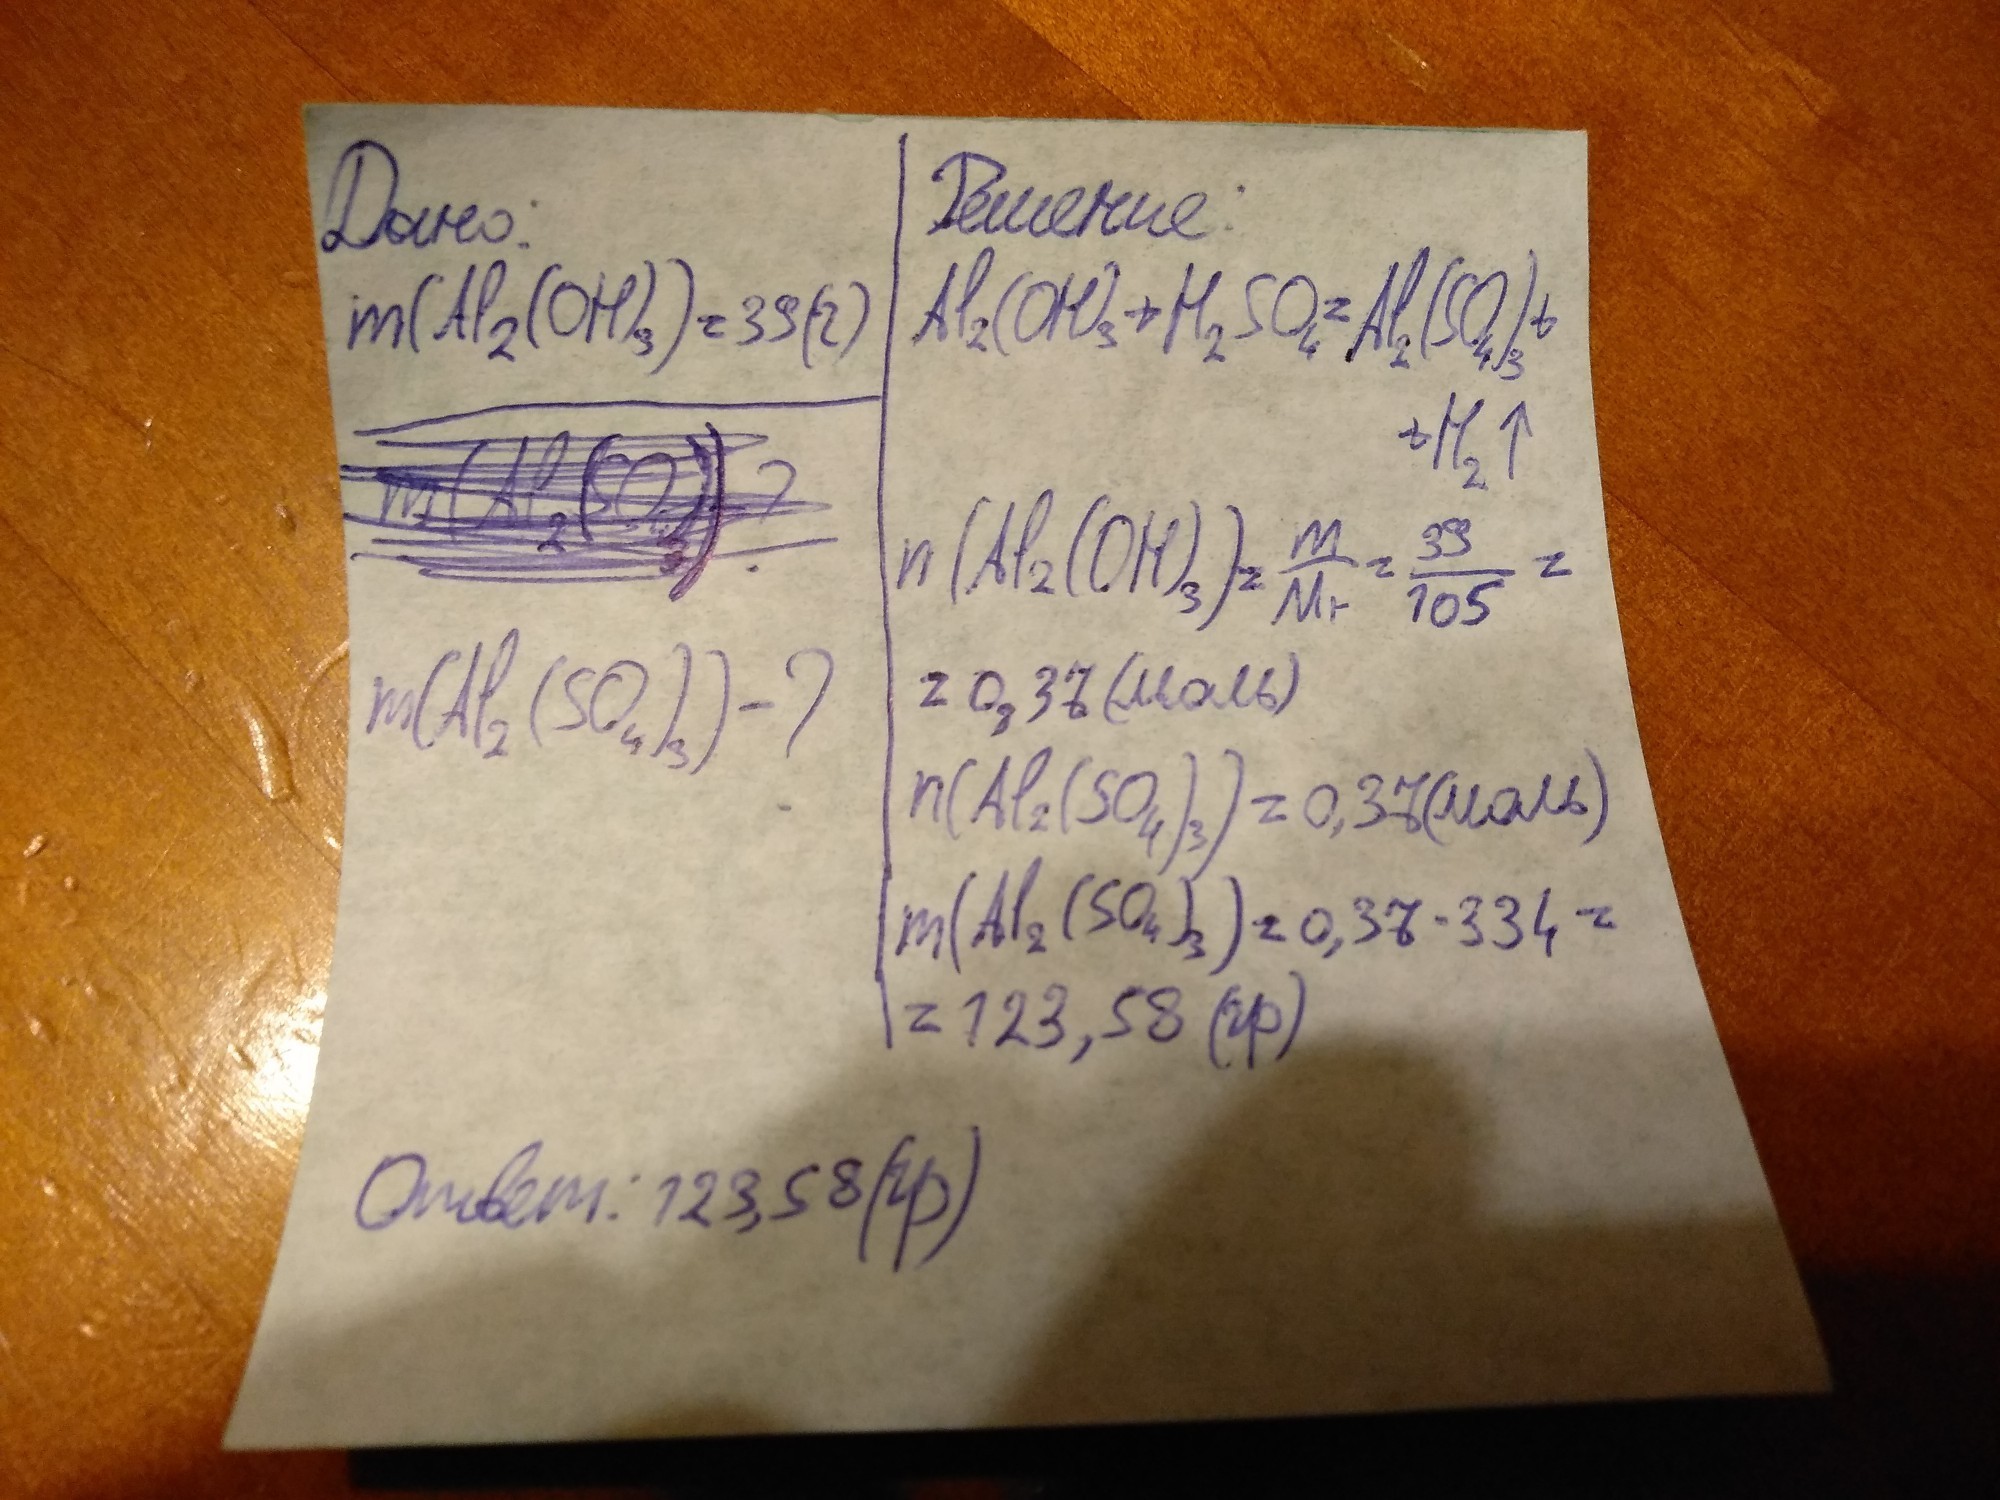 Дано:
m(Al₂(OH)₃)=39(г)
m(Al₂(SO₄)₃)-?
Решение:
Al₂(OH)₃+H₂SO₄=Al₂(SO₄)₃+
+H₂↑
n(Al₂(OH)₃)=m/Mr=39/105=
=0,37(моль)
n(Al₂(SO₄)₃)=0,37(моль)
m(Al₂(SO₄)₃)=0,37·334=
=123,58(гр)
Ответ: 123,58(гр)